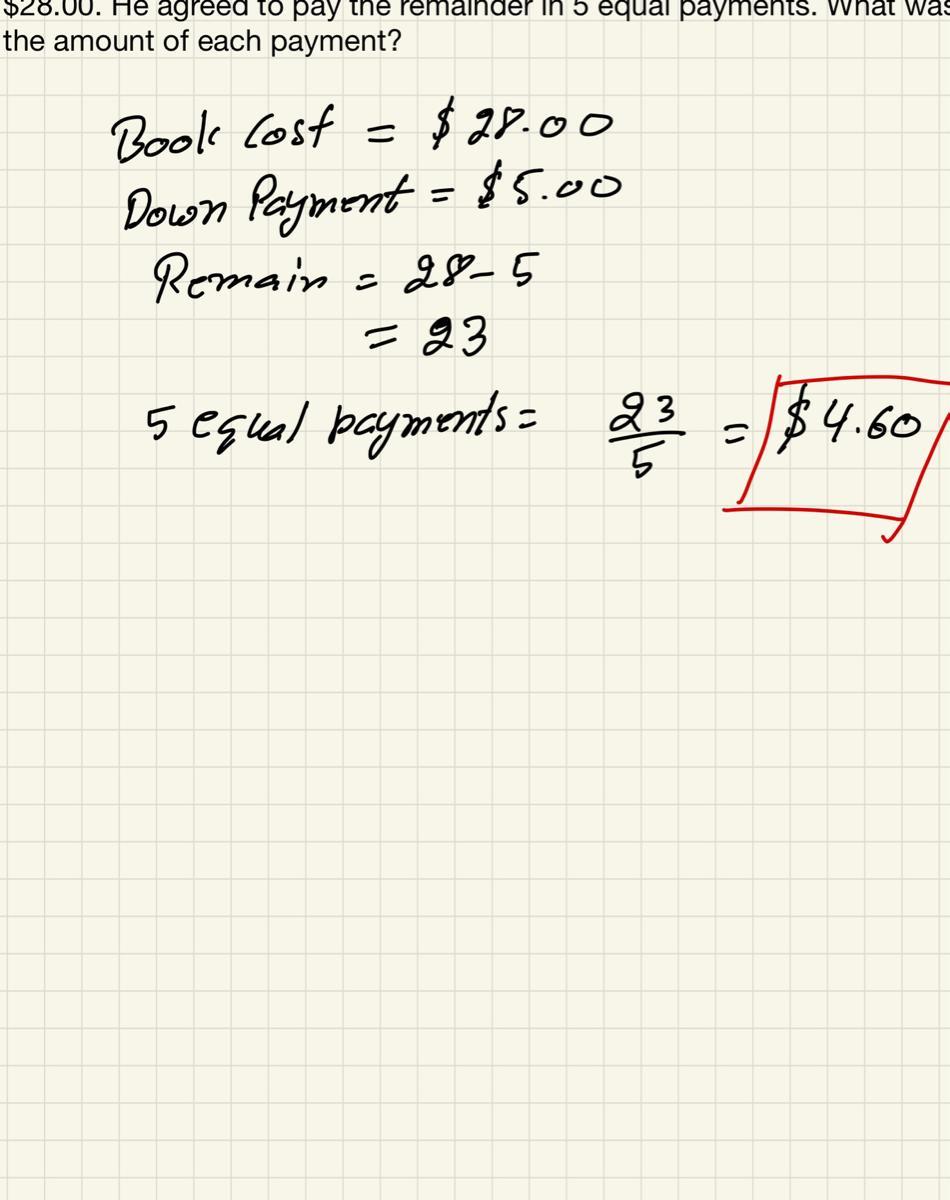 $28.00. He agreed to pay the remainder in 5 equal payments. What was
the amount of each payment?
Book Cost = $28.00
Down Payment = $5.00
Remain = 28-5
= 23
5 equal payments = 23/5 = $4.60